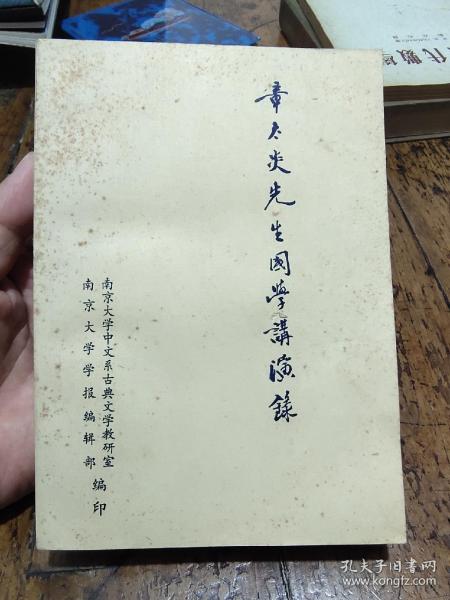 章太炎先生国學講演錄
南京大学中文系古典文学教研室
南京大学学报编辑部
编印
代數
孔夫子旧书网
www.kongfz.com